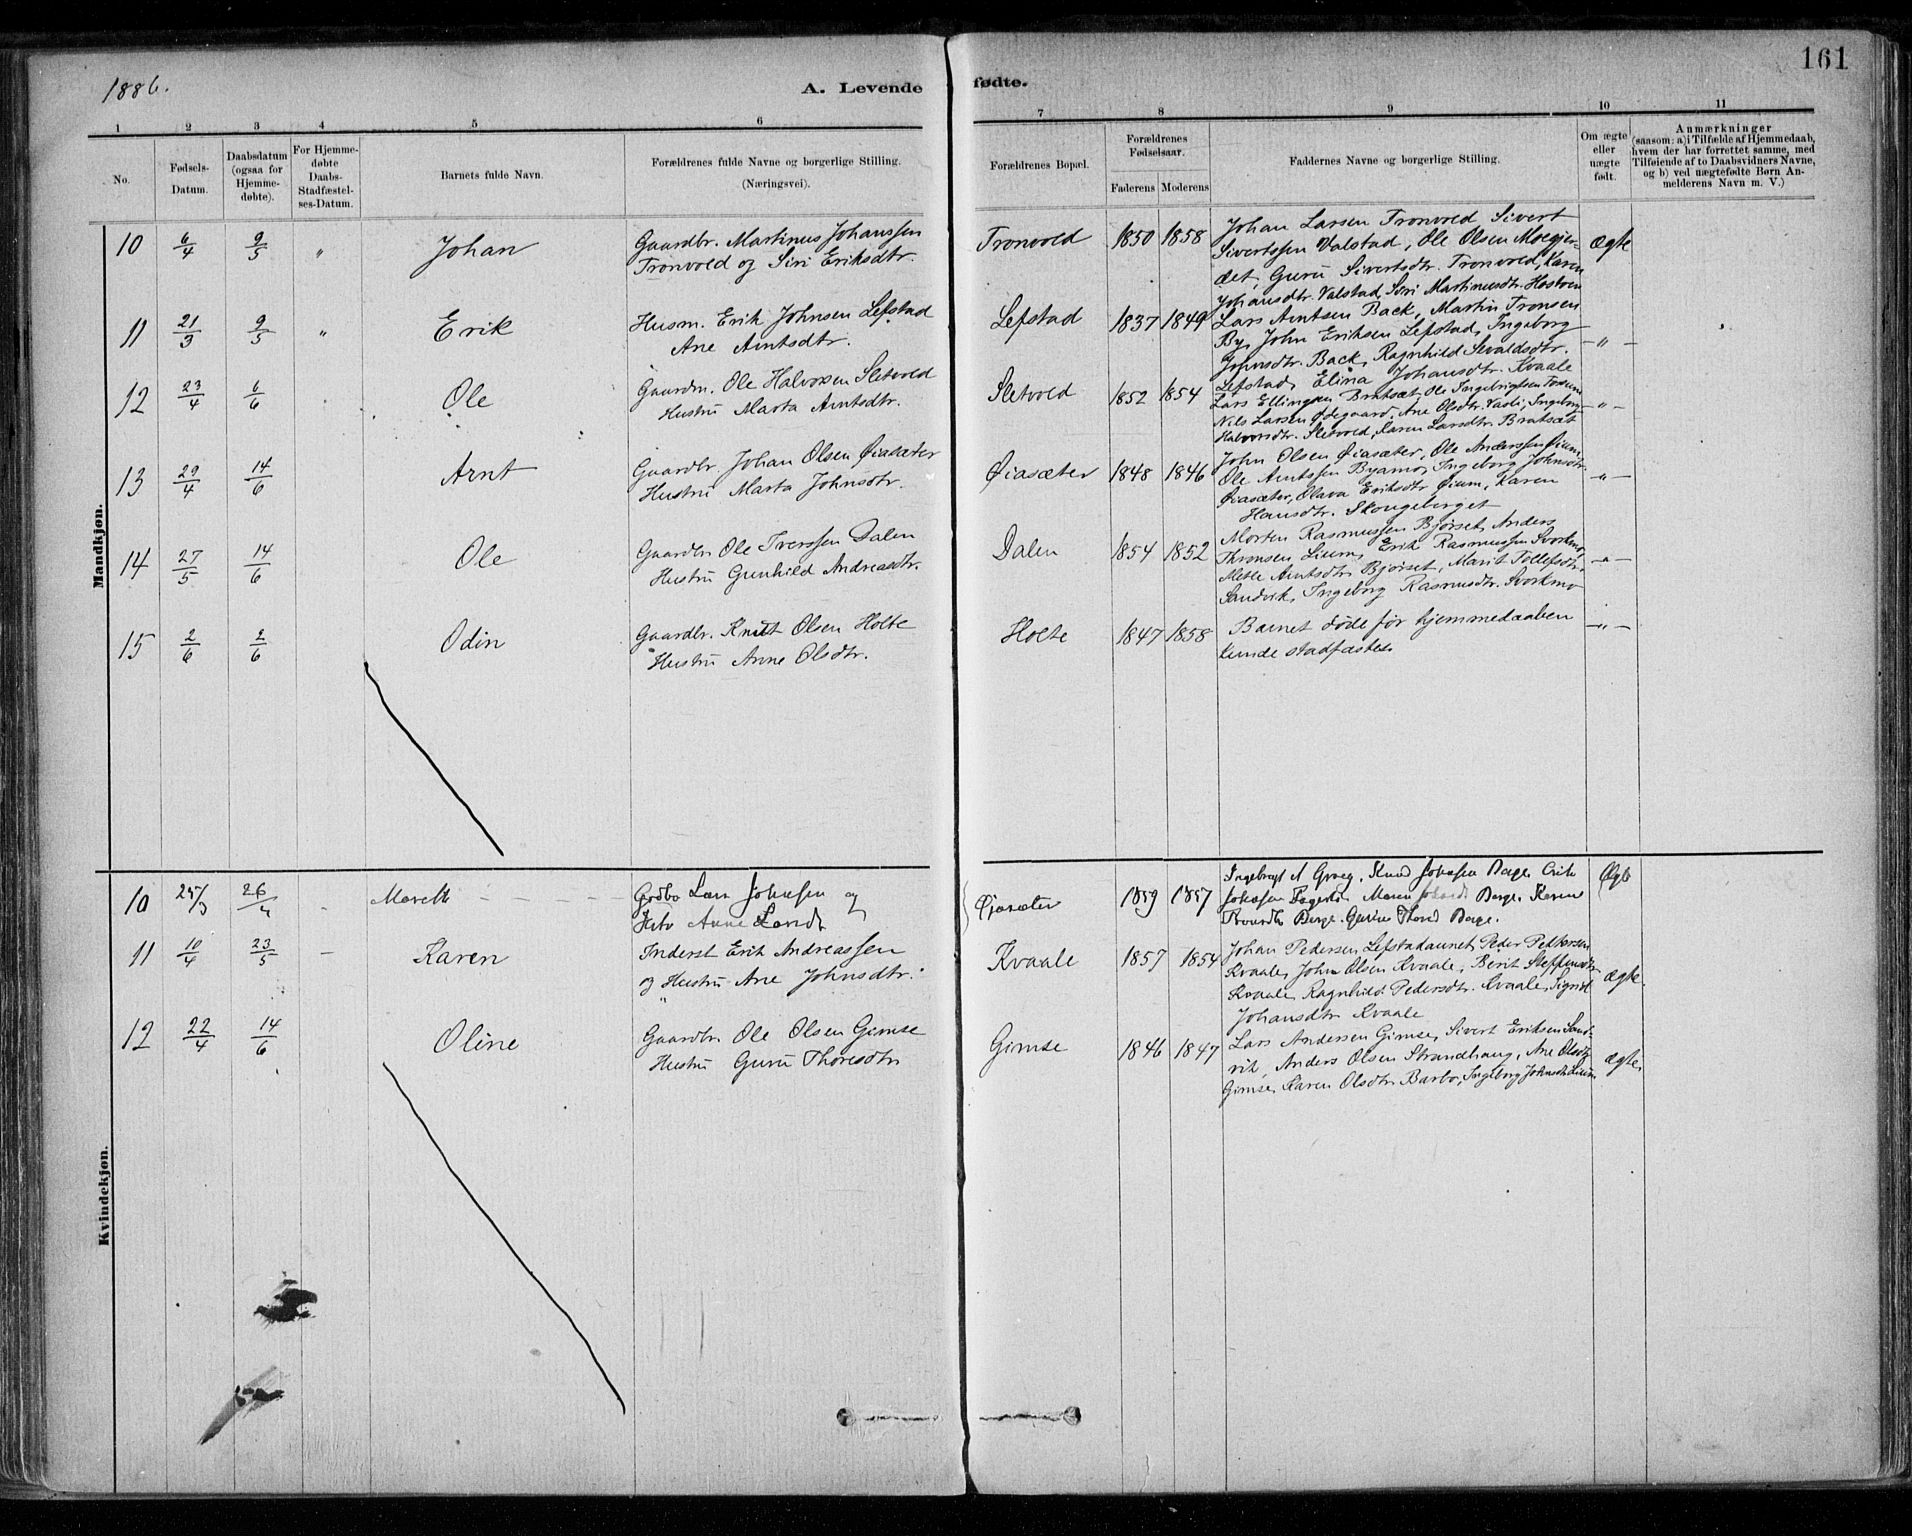 1886.
A. Levende fødte.
161
1 2 3 4 5 6 7 8 9 10 11
No.
Fødsels-
Datum.
Daabsdatum
(ogsaa for
Hjemme-
døbte).
For Hjemme-
døbte
Daabs-
Stadfæstel-
ses-Datum.
Barnets fulde Navn.
Forældrenes fulde Navne og borgerlige Stilling.
(Næringsvei).
Forældrenes Bopæl.
Forældrenes
Fødselsaar.
Faderens Moderens
Faddernes Navne og borgerlige Stilling.
Om ægte
eller
uægte
født.
Anmærkninger
(saasom: a) i Tilfælde af Hjemmedaab,
hvem der har forrettet samme, med
Tilføiende af to Daabsvidners Navne,
og b) ved uægtefødte Børn An-
melderens Navn m. V.)
Mandkjøn.
10 6/4 9/5 " Johan
Gaardbr. Martinus Johanssen
Tronvold og Siri Eriksdtr.
Tronvold 1850 1858
Johan Larsen Tronvold Sivert
Sivertssen Valstad, Ole Olsen Moegjer-
det, Guru Sivertsdtr. Tronvold, Karen
Johansdtr. Valstad, Siri Martinusdtr. Hostven
Ægte
11 21/3 9/5 " Erik
Husm. Erik Johnsen Lefstad
Ane Arntsdtr.
Lefstad 1837 1849
Lars Arntsen Back, Martin Tronsen
By, John Eriksen Lefstad, Ingeborg
Johnsdtr. Back, Ragnhild Sevaldsdtr.
Lefstad, Elina Johansdtr. Kvaale
–"–
12 23/4 6/6 Ole
Gaardm. Ole Halvorsen Sletvold
Hustru Marta Arntsdtr.
Sletvold 1852 1854
Lars Ellingsen Bratsæt, Ole Ingebrigtsen Fossum
Nils Larsen Ødegaard, Ane Olsdtr. Vasli, Ingeborg
Halvorsdtr. Sletvold, Karen Larsdtr. Bratsæt
–"–
13 29/4 14/6 Arnt
Gaardbr. Johan Olsen Øiasæter
Hustru Marta Johnsdtr.
Øiasæter 1848 1846
John Olsen Øiasæter, Ole Anderssen Øium,
Ole Arntssen Byamo, Ingeborg Johnsdtr.
Øiasæter, Olava Eriksdtr Øium, Karen
Hansdtr. Skougeberget
–"–
14 27/5 14/6 Ole
Gaardbr. Ole Iverssen Dalen
Hustru Gunhild Andreasdtr.
Dalen 1854 1852
Morten Rasmussen Bjørset, Anders
Thronsen Lium, Erik Rasmussen Svorkmo,
Mette Arntsdtr. Bjørset, Marit Tollefsdtr.
Sandvik, Ingeborg Rasmusdtr. Svorkmo
–"–
15 2/6 2/6 Odin
Gaardbr. Knut Olsen Holte
Hustru Anne Olsdtr.
Holte 1847 1858
Barnet døde før hjemmedaaben
kunde stadfæstes
–"–
Kvindekjøn.
10 25/3 26/4 - Marett
Gbdbr Lars Johnsen og
Hstr Anne Larsdt
Øjasæter 1859 1857
Ingebrigt A Groeg, Knud Johnsen Berge, Erik
Johnsen Berge
Berge. Gurune Thorsd Berge.
Ægte
11 10/4 23/5 – Karen
Inderst Erik Andreassen
og Hustru Ane Johnsdtr.
Kvaale 1857 1854
Johan Pedersen Lefstadaunet, Peder Pettersen
Kvaale, John Olsen Kvaale, Berit Steffensdtr
Kvaale, Ragnhild Pedersdtr. Kvaale, Sigrid
Johansdtr Kvaale
ægte.
12 22/4 14/6 Oline
Gaardbr. Ole Olsen Gimse
Hustru Guru Thoresdtr
Gimse 1846 1847
Lars Andersen Gimse, Sivert Eriksen Sand-
vik, Anders Olsen Strandhaug, Ane Olsdtr
Gimse, Karen Olsdtr Barbo, Ingeborg Johnsdtr Lium
ægte